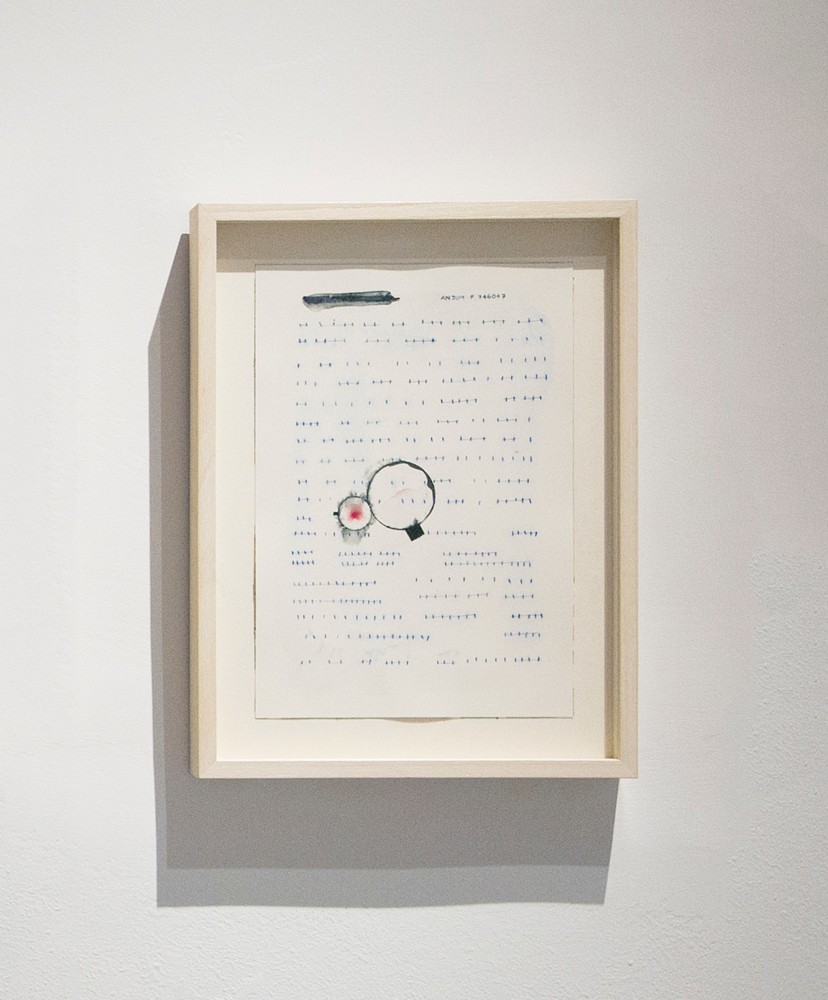 ANJUM F 746047